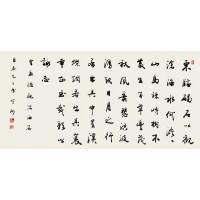 東臨碣石以觀
滄海水何澹澹
山島竦峙樹木
叢生百草豐茂
秋風蕭瑟洪波
湧起日月之行
若出其中星漢
燦爛若出其裏
幸甚至哉歌以
詠志